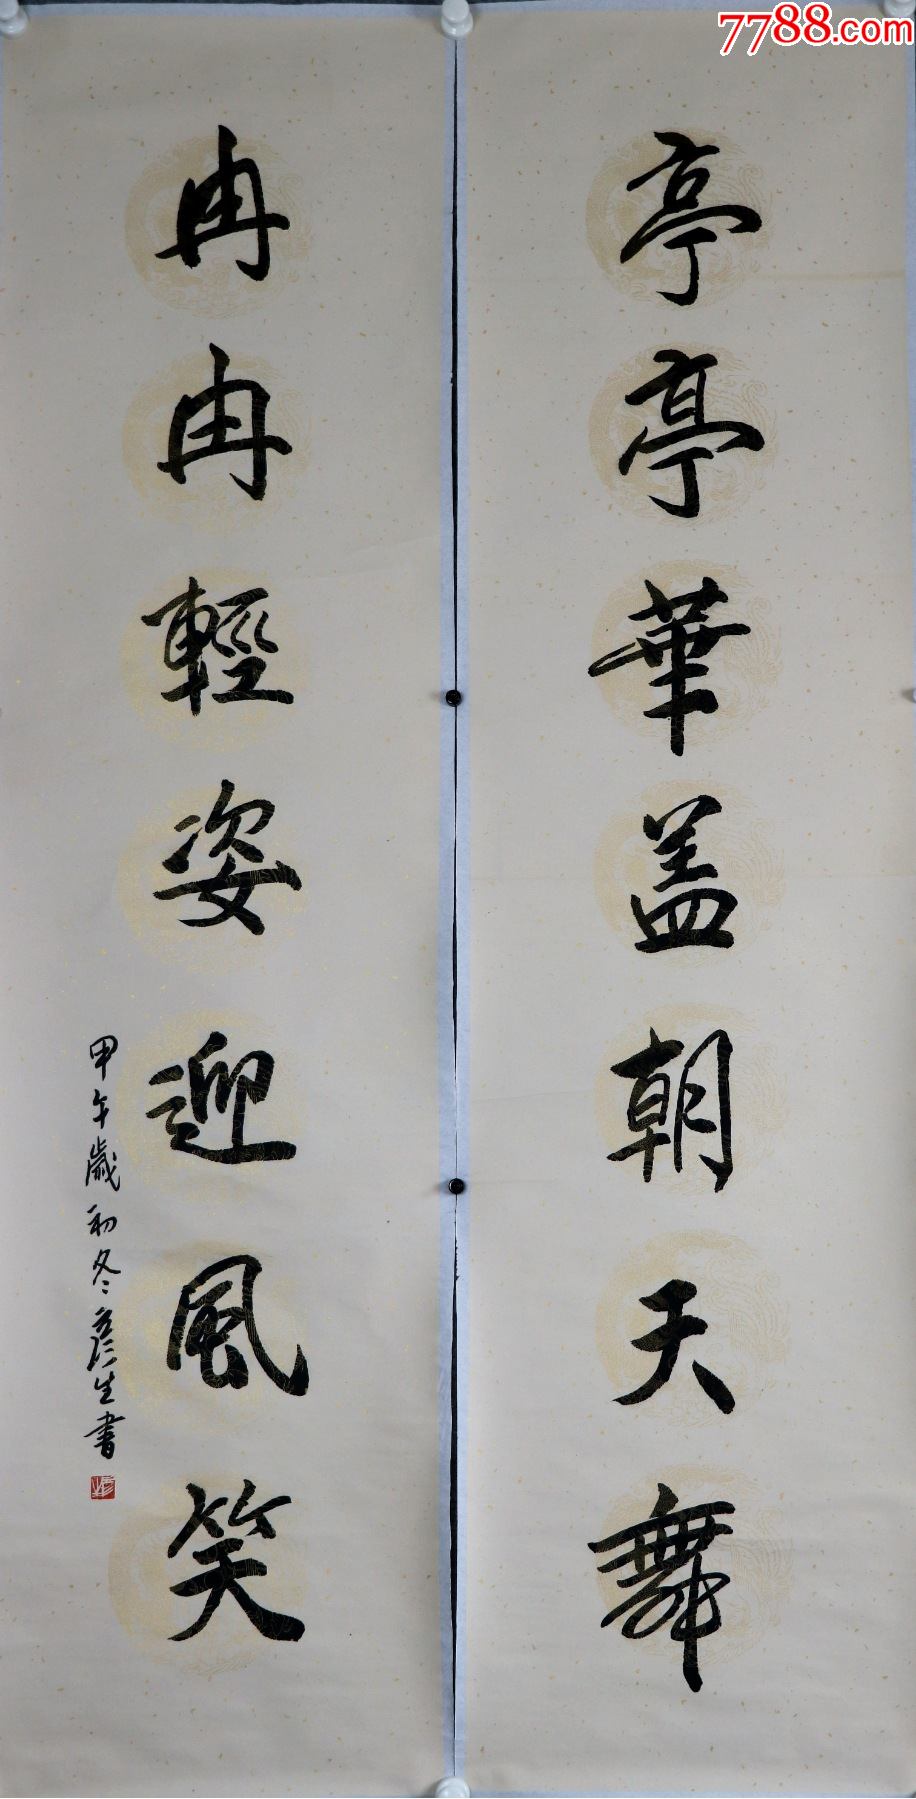 7788.com
亭亭華盖朝天舞
冉冉輕姿迎風笑
甲午歲初冬彦生書